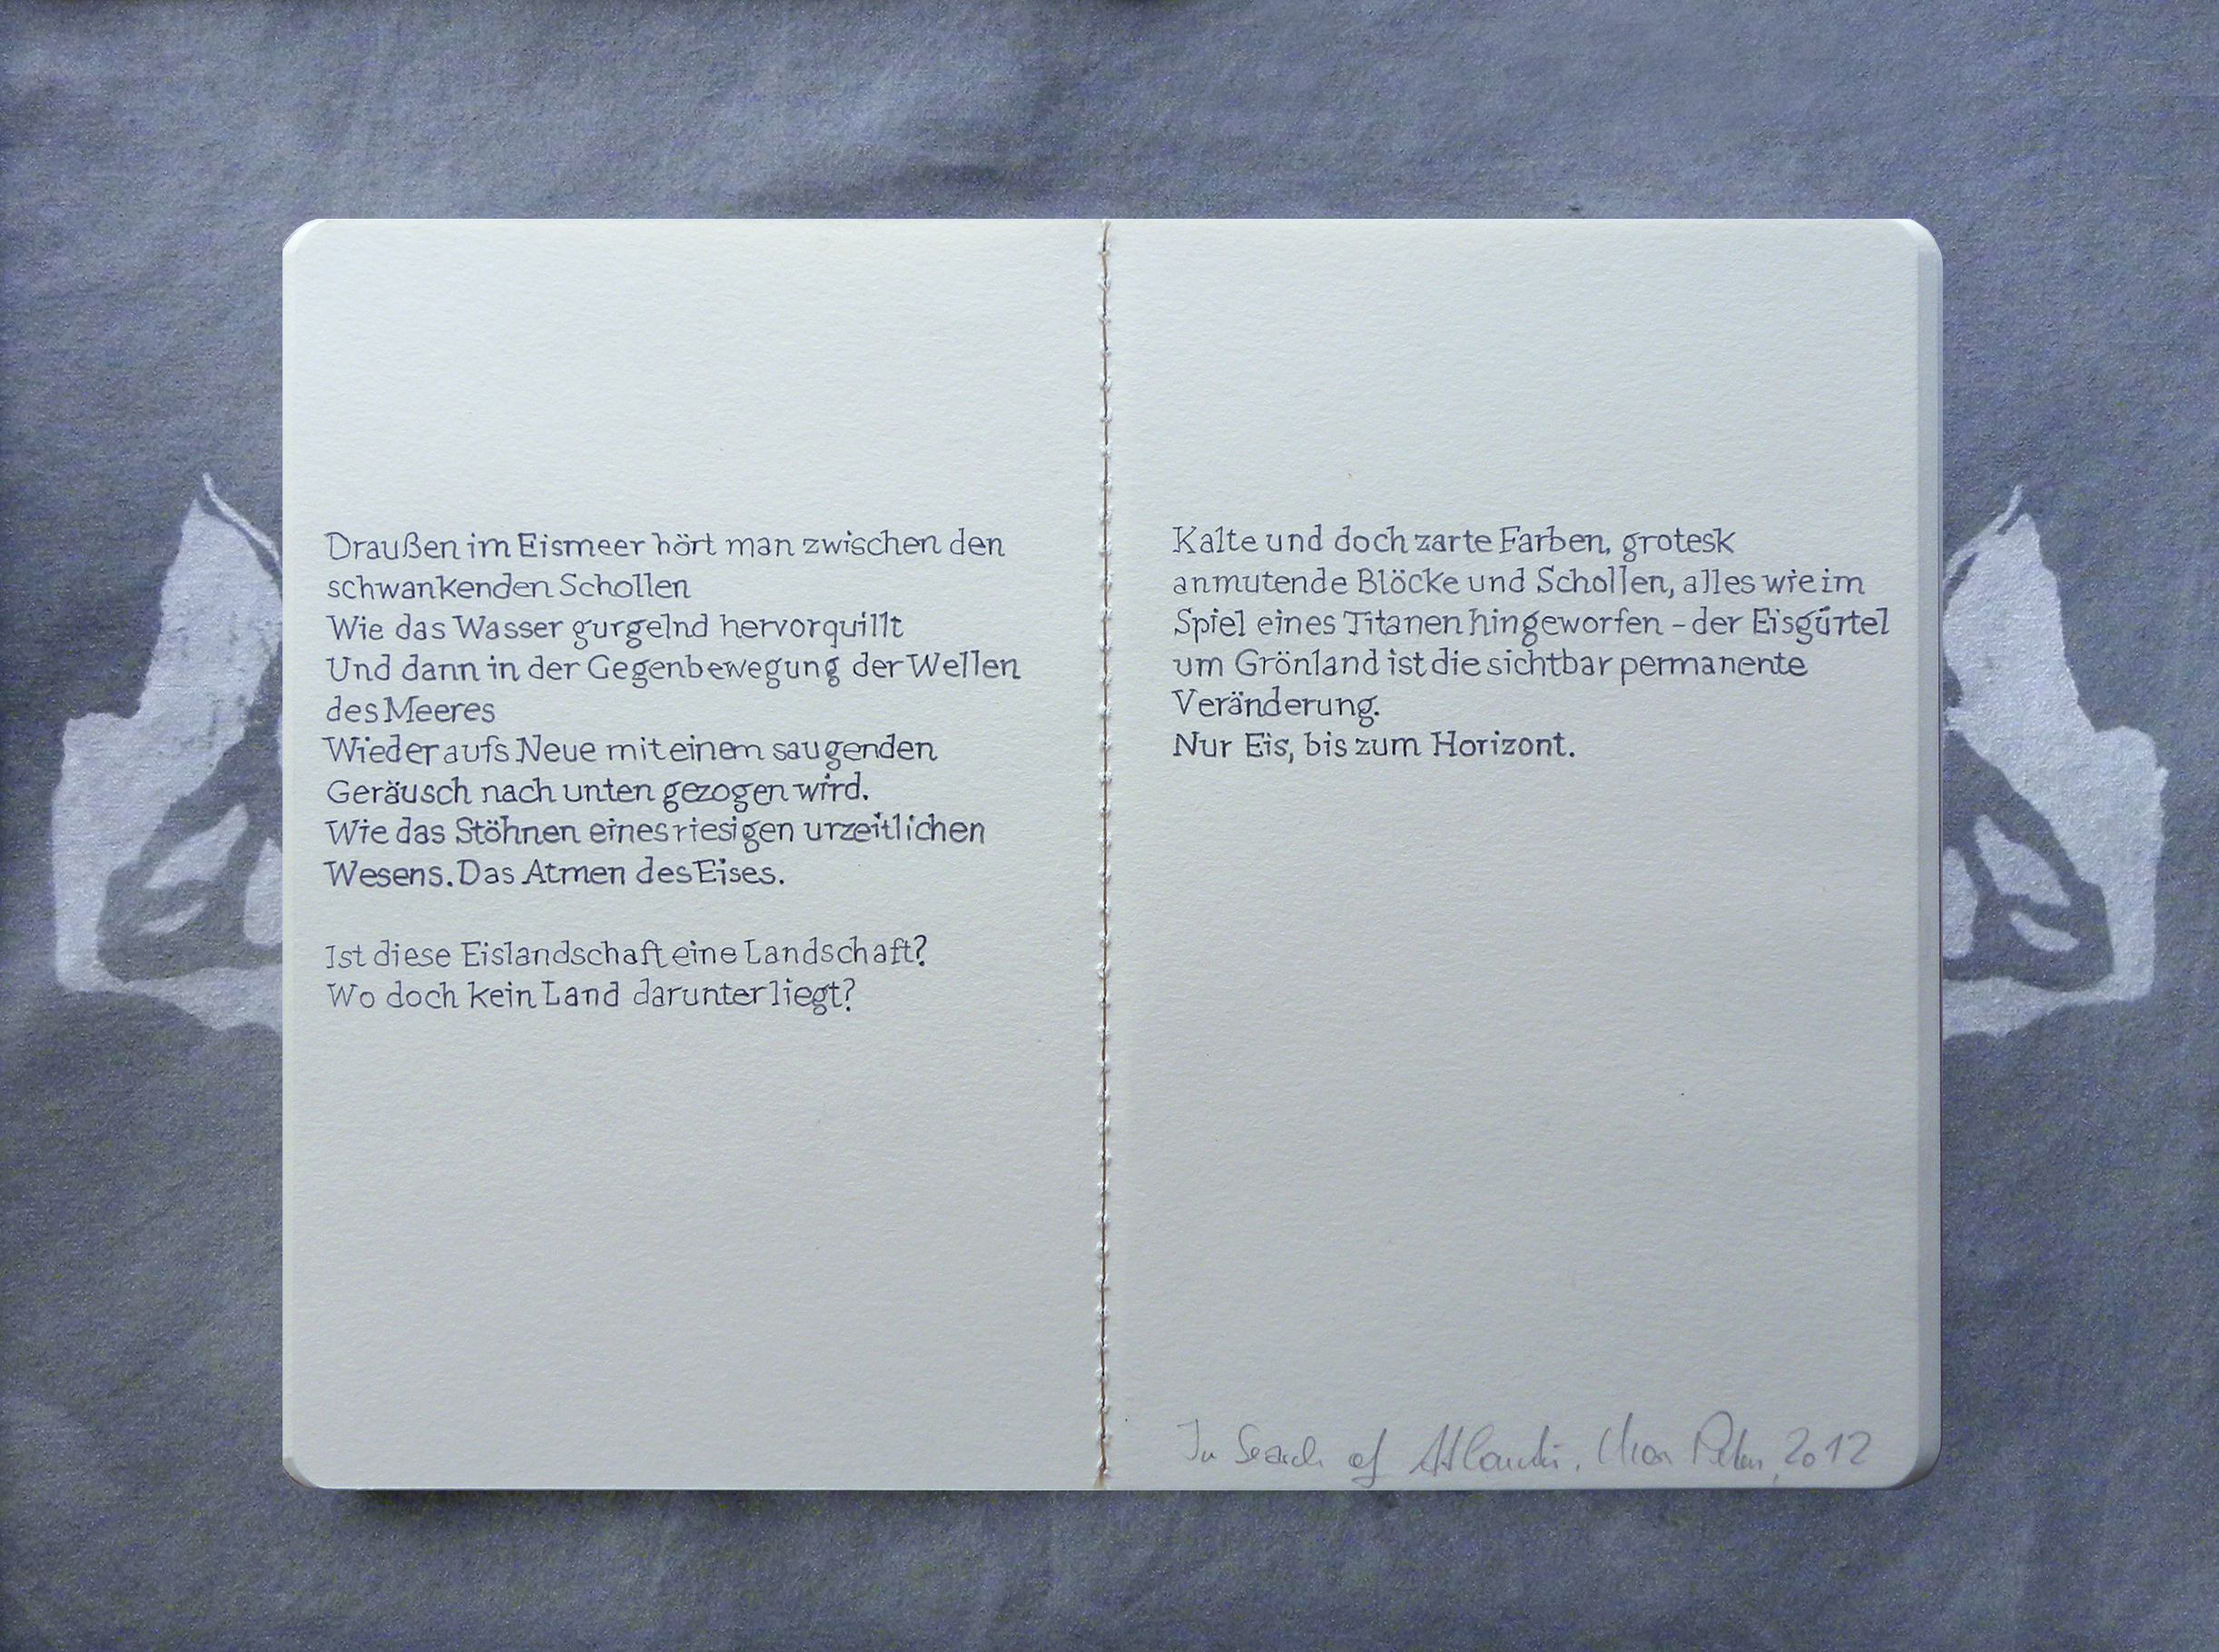 Draußen im Eismeer hört man zwischen den
schwankenden Schollen
Wie das Wasser gurgelnd hervorquillt
Und dann in der Gegenbewegung der Wellen
des Meeres
Wieder aufs Neue mit einem saugenden
Geräusch nach unten gezogen wird.
Wie das Stöhnen eines riesigen urzeitlichen
Wesens. Das Atmen des Eises.
Ist diese Eislandschaft eine Landschaft?
Wo doch kein Land darunter liegt?
Kalte und doch zarte Farben, grotesk
anmutende Blöcke und Schollen, alles wie im
Spiel eines Titanen hingeworfen - der Eisgürtel
um Grönland ist die sichtbar permanente
Veränderung.
Nur Eis, bis zum Horizont.
In Search of Atlantis, 2012